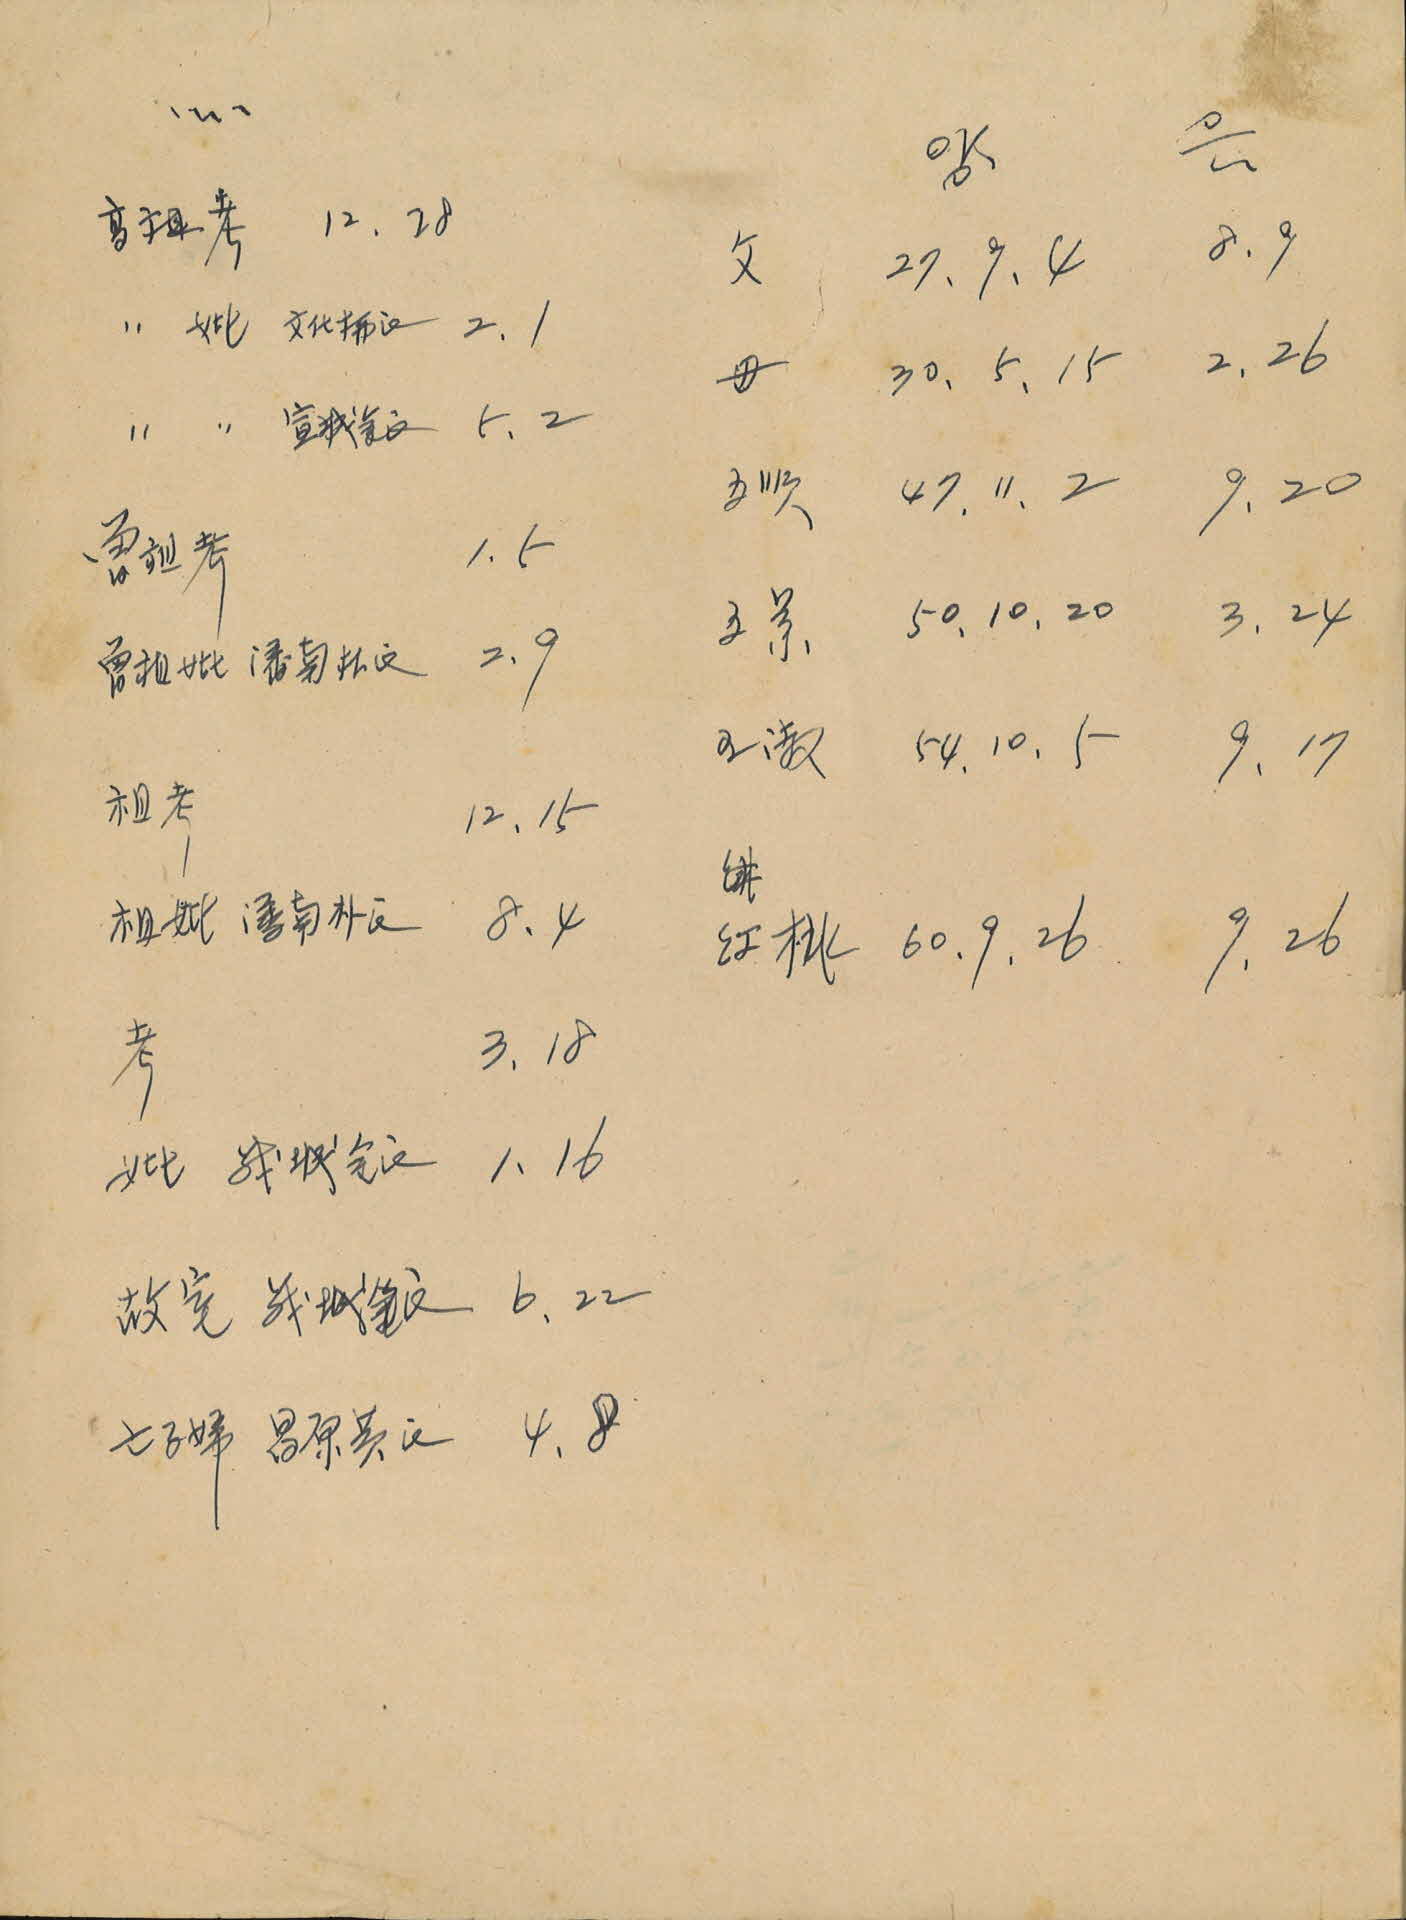 高祖考 12. 28
" 妣 文化柳氏 2. 1
" " 宣城金氏 5. 2
曾祖考 1. 5
曾祖妣 潘南朴氏 2. 9
祖考 12. 15
祖妣 潘南朴氏 8. 4
考 3. 18
妣 義城金氏 1. 16
故室 義城金氏 6. 22
七子婦 昌原黃氏 4. 8
양 음
父 27. 9. 4 8. 9
母 30. 5. 15 2. 26
47. 11. 2 9. 20
50. 10. 20 3. 24
54. 10. 5 9. 17
紅桃 60. 9. 26 9. 26